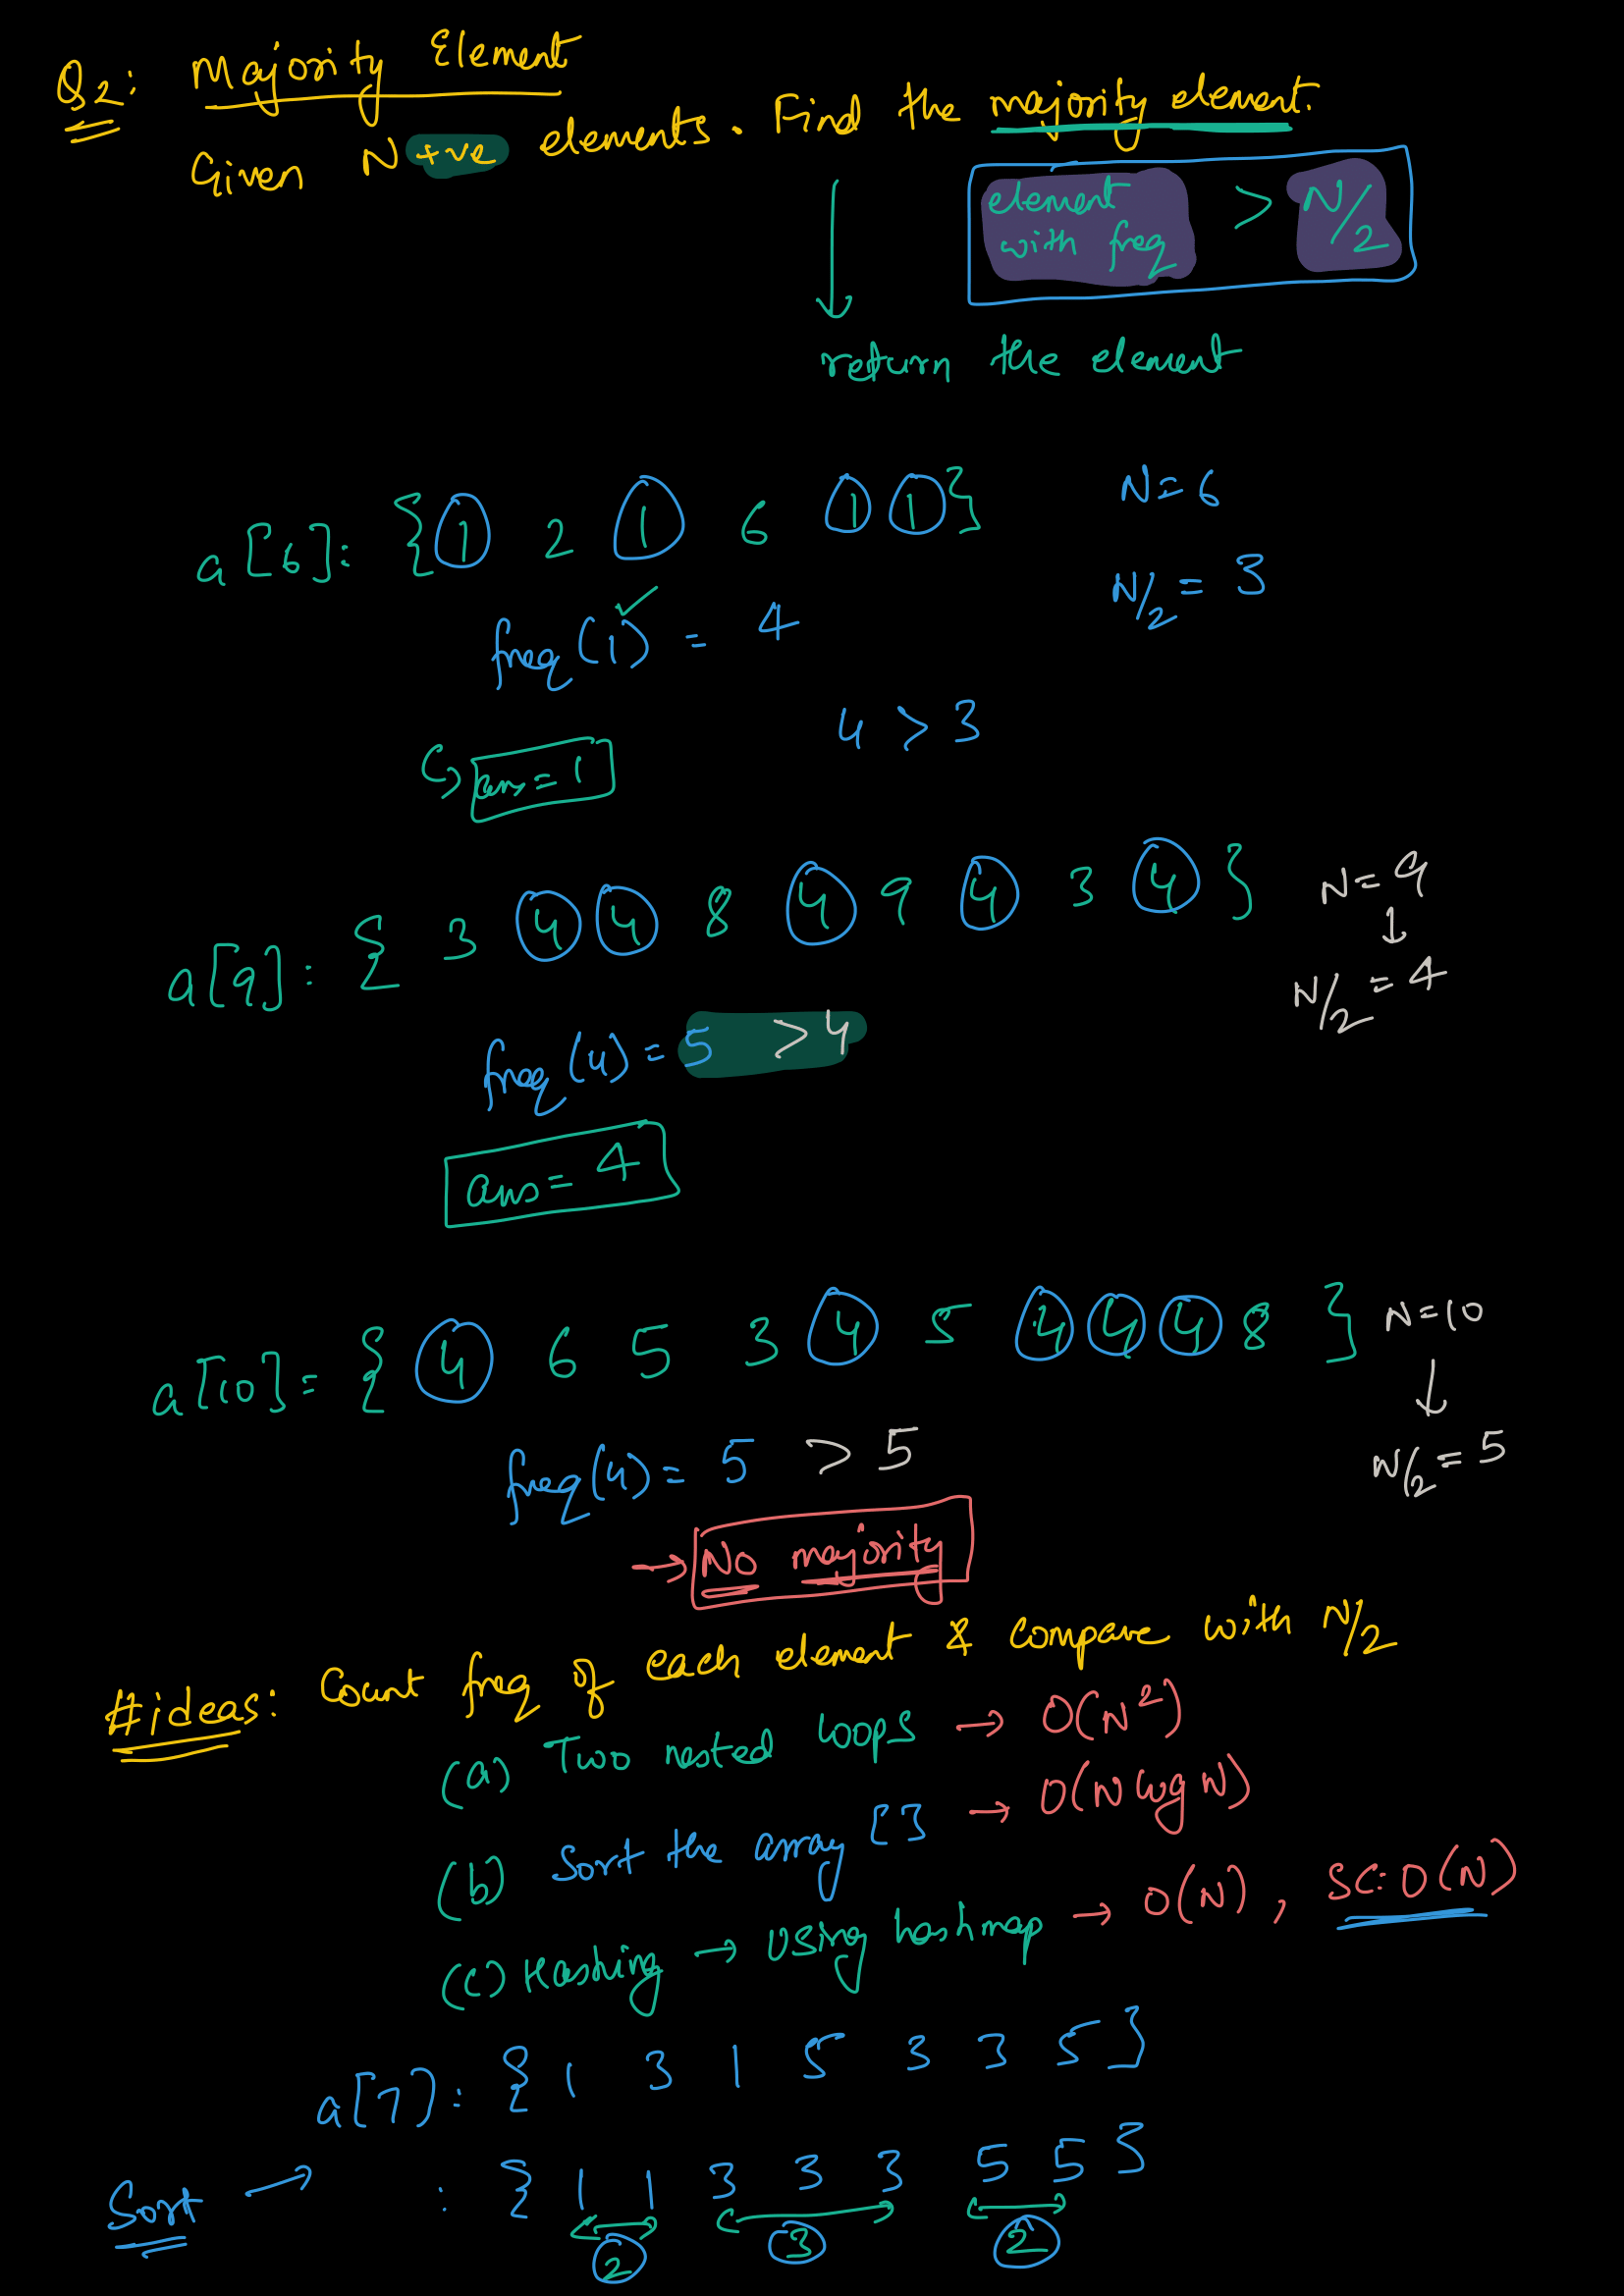 Q2: Majority Element
Given N +ve elements. Find the majority element.
element with freq > N/2
return the element
a[6]: {1 2 1 6 1 1} N=6
freq(1) = 4 N/2 = 3
4 > 3
ans = 1
a[9]: { 3 4 4 8 4 9 4 3 4 } N=9
N/2 = 4
freq(4) = 5 > 4
ans = 4
a[10] = { 4 6 5 3 4 5 4 4 4 8 } N=10
freq(4) = 5 > 5 N/2 = 5
→ No majority
#ideas: Count freq of each element & compare with N/2
(a) Two nested loops → O(N²)
(b) Sort the array [] → O(N log N)
(c) Hashing → Using hashmap → O(N), SC: O(N)
a[7]: { 1 3 1 5 3 3 5 }
Sort → : { 1 1 3 3 3 5 5 }
2 3 2